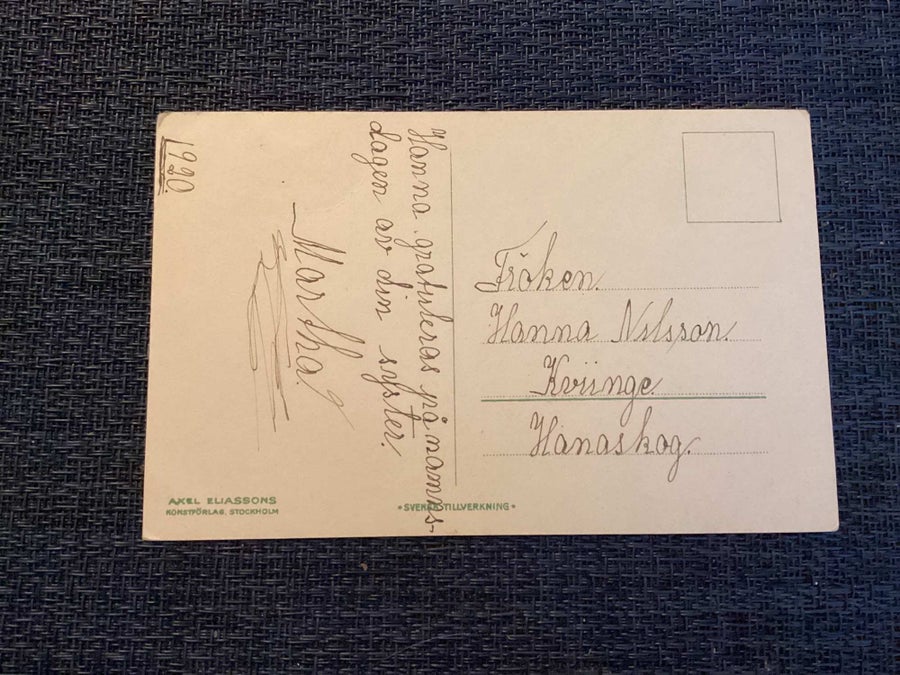 1920
Hanna gratuleras på namns-
dagen av din syster.
Martha
Fröken
Hanna Nilsson.
Kviinge
Hanaskog.
AXEL ELIASSONS
KONSTFÖRLAG, STOCKHOLM
SVENSK TILLVERKNING